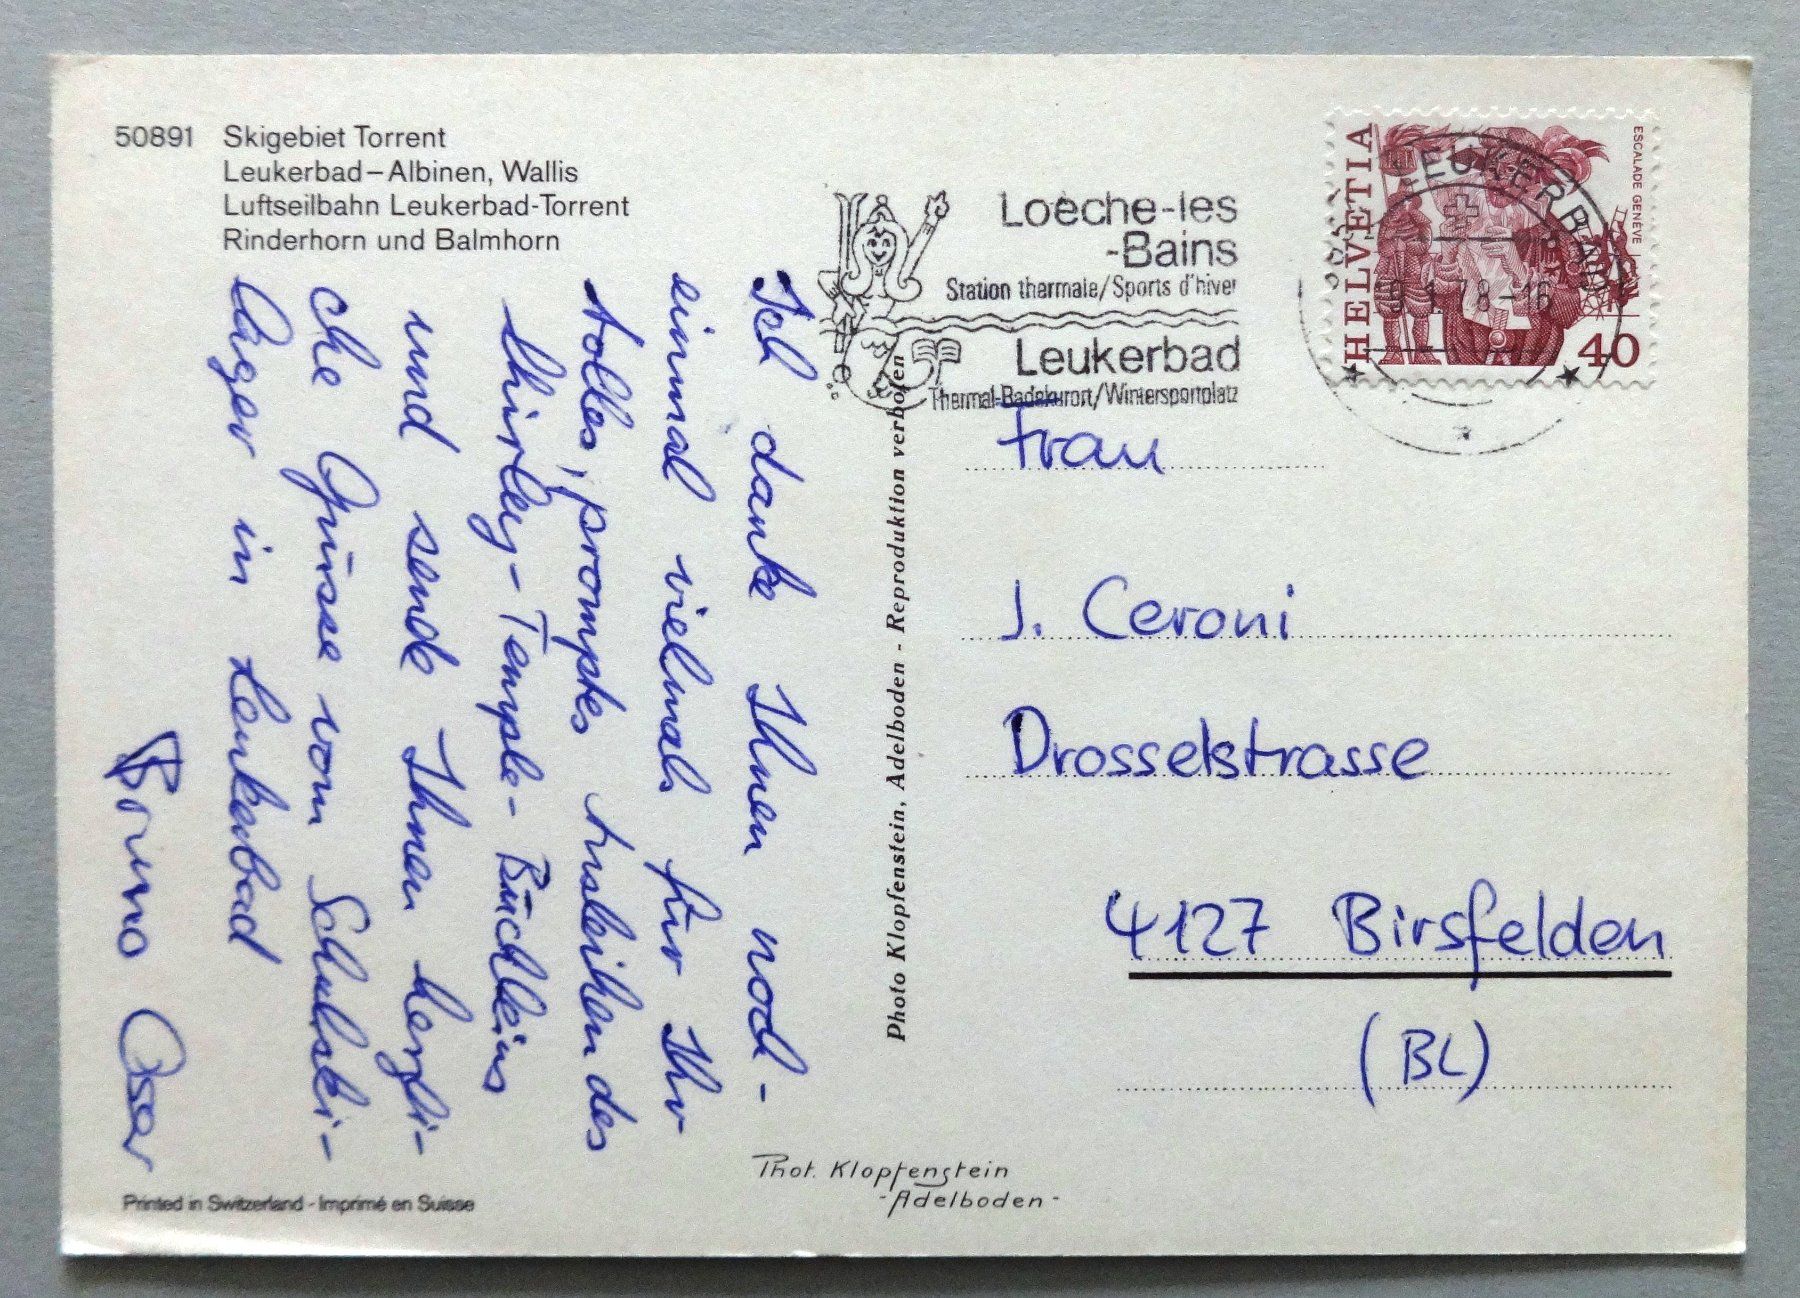 50891 Skigebiet Torrent
Leukerbad–Albinen, Wallis
Luftseilbahn Leukerbad-Torrent
Rinderhorn und Balmhorn
Ich danke Ihnen noch-
einmal vielmals für Ihr
tolles, promptes Ausleihen des
Shirley-Temple-Büchleins
und sende Ihnen herzli-
che Grüsse vom Schulski-
lager in Leukerbad
Bruno Oser
Printed in Switzerland - Imprimé en Suisse
Photo Klopfenstein, Adelboden - Reproduktion verboten
Phot. Klopfenstein
-Adelboden-
Loèche-les
-Bains
Station thermale/Sports d'hiver
Leukerbad
Thermal-Badekurort/Wintersportplatz
HELVETIA
ESCALADE GENÈVE
40
LEUKERBAD
1.78-16
Frau
J. Ceroni
Drosselstrasse
4127 Birsfelden
(BL)